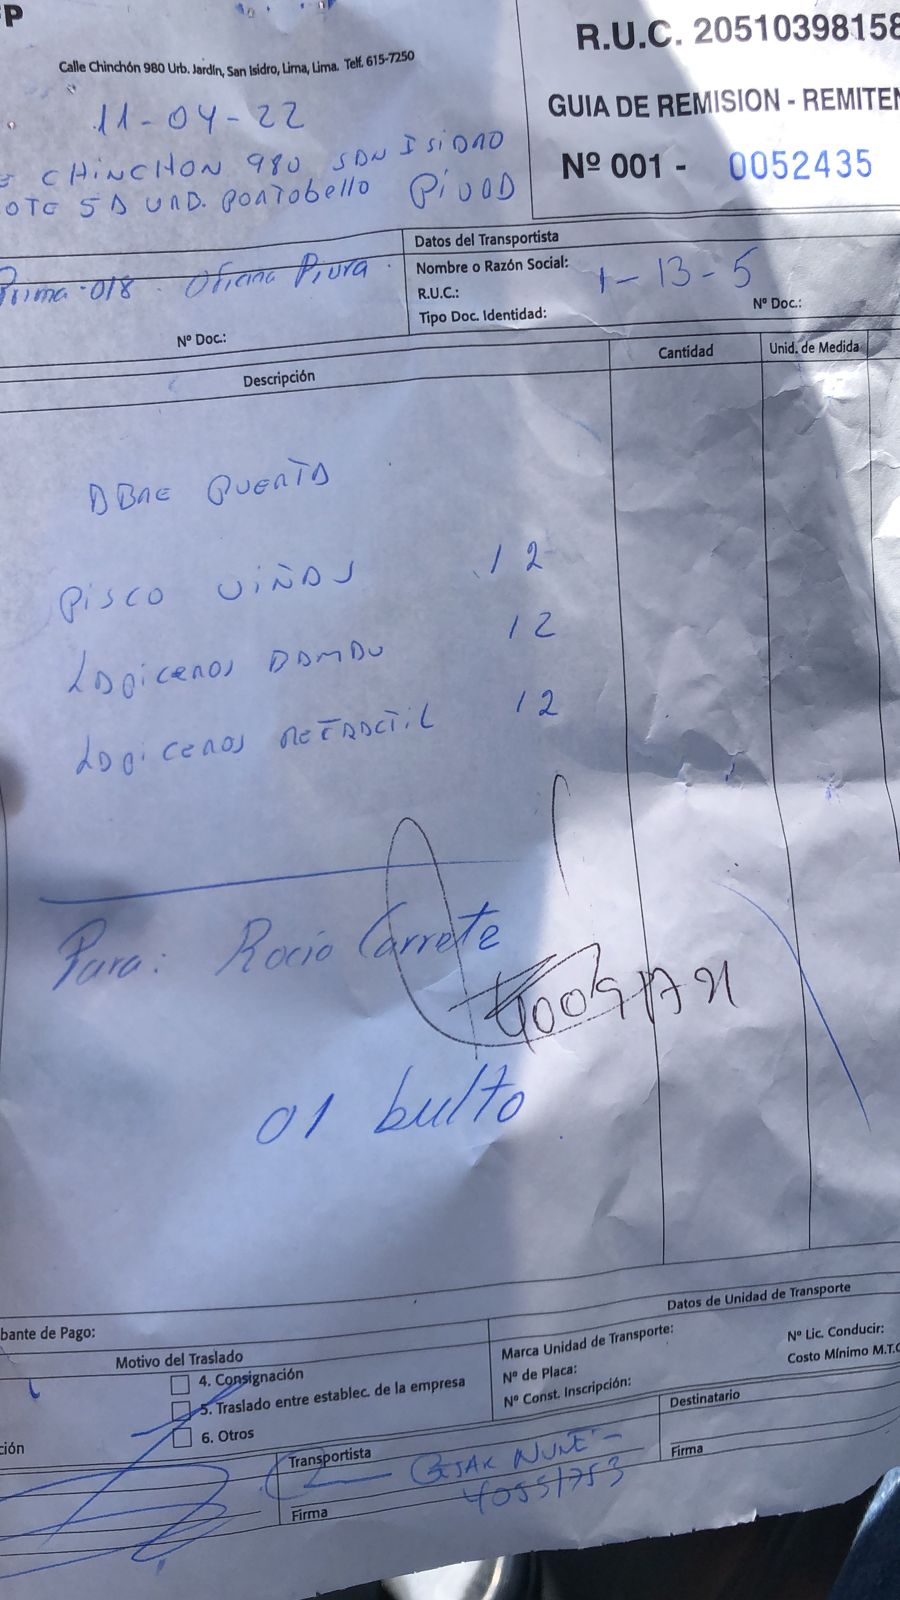 P
Calle Chinchón 980 Urb. Jardín, San Isidro, Lima, Lima. Telf. 615-7250
R.U.C. 20510398158
GUIA DE REMISION - REMITEN
Nº 001 - 0052435
11-04-22
E CHINCHON 980 SAN ISIDRO
OTE 5A URB. PORTOBELLO PIURA
Prima-018 - Oficina Piura.
Nº Doc.:
Datos del Transportista
Nombre o Razón Social:
1-13-5
R.U.C.:
Tipo Doc. Identidad:
Nº Doc.:
Descripción
Cantidad
Unid. de Medida
ABRE PUERTA
PISCO VIÑAS 12
LAPICEROS 12
LAPICEROS RETRACTIL 12
Para: Rocio Carrete
01 bulto
bante de Pago:
Motivo del Traslado
4. Consignación
5. Traslado entre establec. de la empresa
6. Otros
ción
Datos de Unidad de Transporte
Marca Unidad de Transporte:
Nº de Placa:
Nº Const. Inscripción:
Nº Lic. Conducir:
Costo Mínimo M.T.C
Transportista
CESAR NUÑE
40551753
Firma
Destinatario
Firma